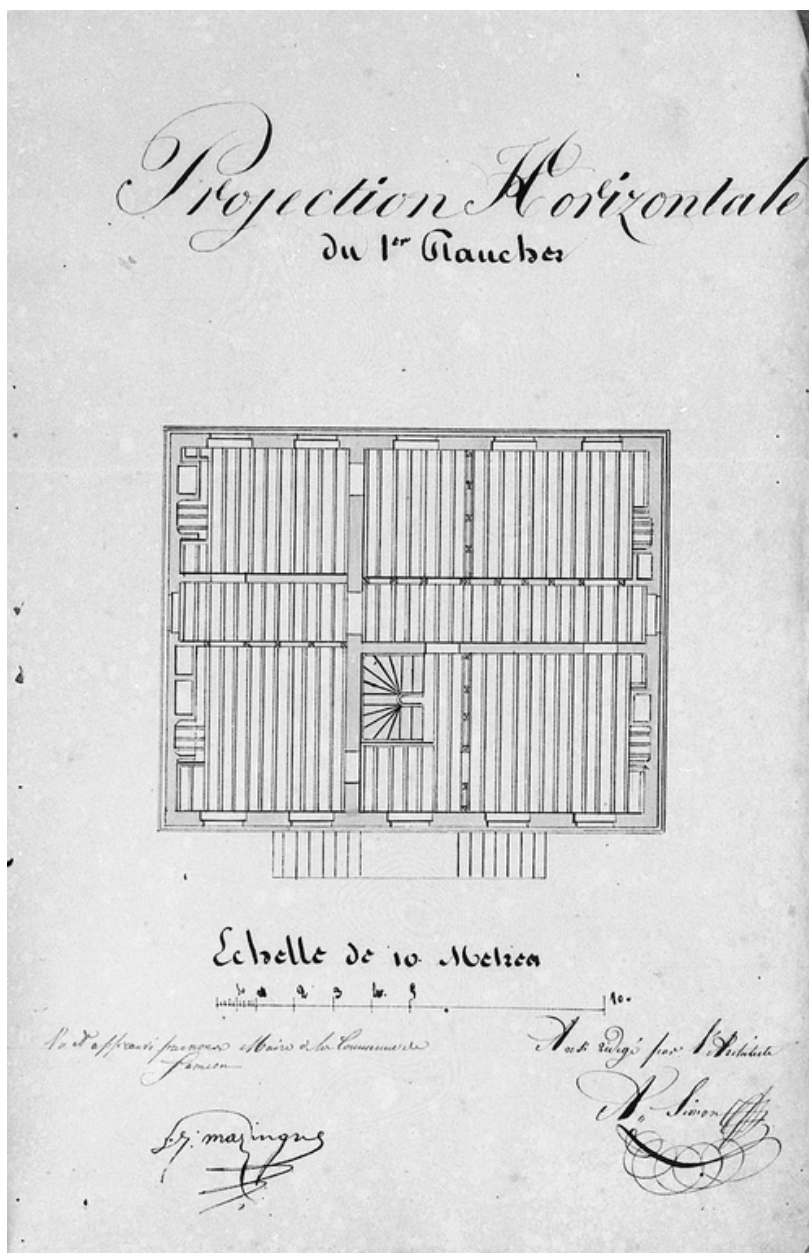 Projection Horizontale
du 1er Plancher
Echelle de 10 Metres
2 3 4 5 10
Vu et approuvé par nous Maire de la Commune de
Ainsi rédigé par l'Architecte
A. Simon